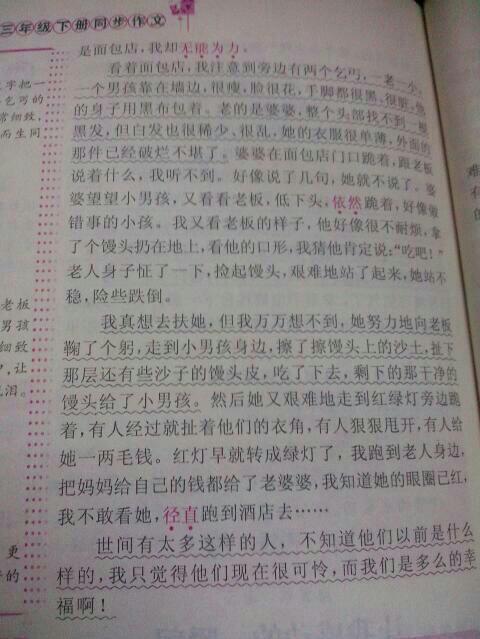 三年级下册同步作文
是面包店，我却无能为力。
看着面包店，我注意到旁边有两个乞丐，一老一少，
一个男孩靠在墙边，很瘦，脸很花，手脚都很黑，很脏，他
的身子用黑布包着。老的是婆婆，整个头部找不到一根
黑发，但白发也很稀少、很乱，她的衣服很单薄，外面的
那件已经破烂不堪了。婆婆在面包店门口跪着，跟老板
说着什么，我听不到。好像说了几句，她就不说了。婆
婆望望小男孩，又看看老板，低下头，依然跪着，好像做
错事的小孩。我又看老板的样子，他好像很不耐烦，拿
了个馒头扔在地上，看他的口形，我猜他肯定说：“吃吧！”
老人身子怔了一下，捡起馒头，艰难地站了起来，她站不
稳，险些跌倒。
我真想去扶她，但我万万想不到，她努力地向老板
鞠了个躬，走到小男孩身边，擦了擦馒头上的沙土，扯下
那层还有些沙子的馒头皮，吃了下去，剩下的那干净的
馒头给了小男孩。然后她又艰难地走到红绿灯旁边跪
着，有人经过就扯着他们的衣角，有人狠狠甩开，有人给
她一两毛钱。红灯早就转成绿灯了，我跑到老人身边，
把妈妈给自己的钱都给了老婆婆，我知道她的眼圈已红，
我不敢看她，径直跑到酒店去……
世间有太多这样的人，不知道他们以前是什么
样的，我只觉得他们现在很可怜，而我们是多么的幸
福啊！
字把一
乞丐的
常细致，
而生同
老板
男孩
细致
，让
泪。
更
的